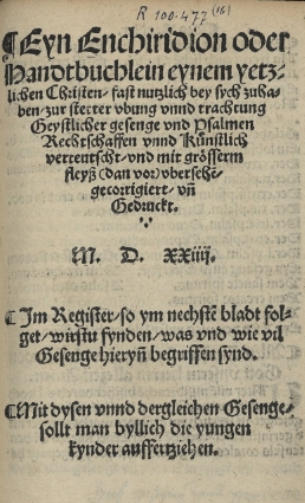 R 100.477 (16)
¶Eyn Enchiridion oder
Handtbuchlein eynem yetz⸗
lichen Christen/ fast nutzlich bey sych zuha⸗
ben/ zur stetter vbung vnnd trachtung
Geystlicher gesenge vnd Psalmen
Rechtschaffen vnnd Künstlich
verteutscht/ vnd mit grösserm
fleyß (dan vor) vbersehē⸗
gecorrigiert/ vñ
Gedruckt.
M. D. XXiiij.
¶Im Register/ so ym nechstē bladt fol⸗
get/ wirstu fynden/ was vnd wie vil
Gesenge hieryñ begriffen synd.
¶Mit dysen vnnd dergleichen Gesenge⸗
sollt man byllich die yungen
kynder aufferttziehen.